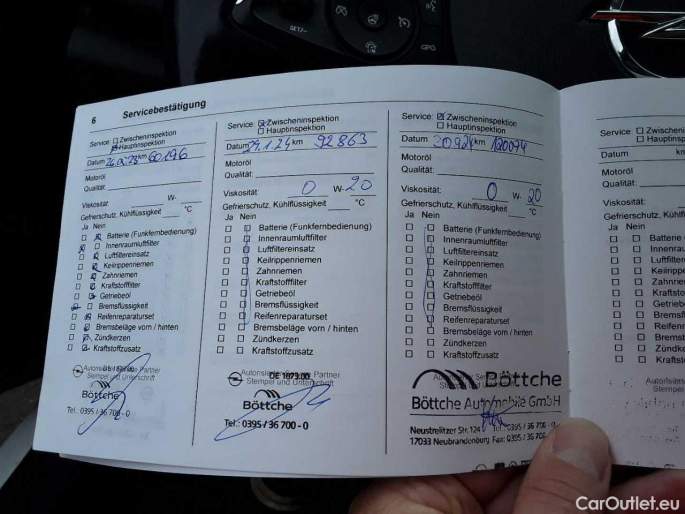 SET/-
GPO
6 Servicebestätigung
Service: Zwischeninspektion
Hauptinspektion
Datum km 60196
Motoröl
Qualität:
Viskosität: W-
Gefrierschutz, Kühlflüssigkeit °C
Ja Nein
Batterie (Funkfernbedienung)
Innenraumluftfilter
Luftfiltereinsatz
Keilrippenriemen
Zahnriemen
Kraftstofffilter
Getriebeöl
Bremsflüssigkeit
Reifenreparaturset
Bremsbeläge vorn / hinten
Zündkerzen
Kraftstoffzusatz
Autorisierter Service Partner
Stempel und Unterschrift
Böttche
Tel.: 0395 / 36 700 - 0
Service: Zwischeninspektion
Hauptinspektion
Datum 29.1.24 km 92863
Motoröl
Qualität:
Viskosität: 0 W- 20
Gefrierschutz, Kühlflüssigkeit °C
Ja Nein
Batterie (Funkfernbedienung)
Innenraumluftfilter
Luftfiltereinsatz
Keilrippenriemen
Zahnriemen
Kraftstofffilter
Getriebeöl
Bremsflüssigkeit
Reifenreparaturset
Bremsbeläge vorn / hinten
Zündkerzen
Kraftstoffzusatz
DE 1873.00
Autorisierter Service Partner
Stempel und Unterschrift
Böttche
Tel.: 0395 / 36 700 - 0
Service: Zwischeninspektion
Hauptinspektion
Datum km 120074
Motoröl
Qualität:
Viskosität: 0 W- 20
Gefrierschutz, Kühlflüssigkeit °C
Ja Nein
Batterie (Funkfernbedienung)
Innenraumluftfilter
Luftfiltereinsatz
Keilrippenriemen
Zahnriemen
Kraftstofffilter
Getriebeöl
Bremsflüssigkeit
Reifenreparaturset
Bremsbeläge vorn / hinten
Zündkerzen
Kraftstoffzusatz
Böttche
Böttche Automobile GmbH
Neustrelitzer Str. 124 Tel.: 0395/36 700-0
17033 Neubrandenburg Fax: 0395/36 700
Service: Zwischen
Hauptins
Datum km
Motoröl
Qualität:
Viskosität:
Gefrierschutz, Kühlflüssig
Ja Nein
Batterie
Innenra
Luftfilter
Keilripp
Zahnrie
Kraftstof
Getriebe
Bremsfl
Reifenre
Bremsbe
Zündke
Kraftsto
CarOutlet.eu